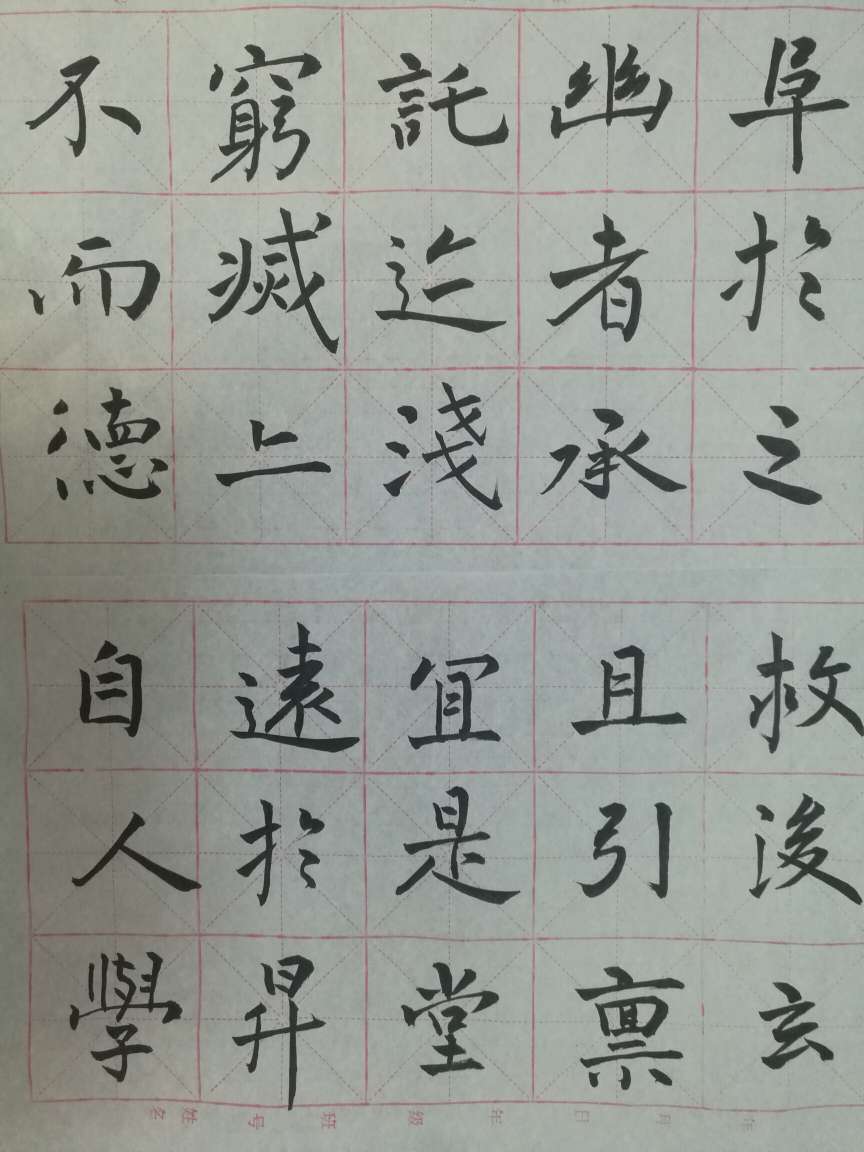 阜於之
幽者承
託迄淺
窮滅上
不而德
救後玄
且引禀
冝是堂
遠於昇
自人學
年 月 日 年 级 班 号 姓名